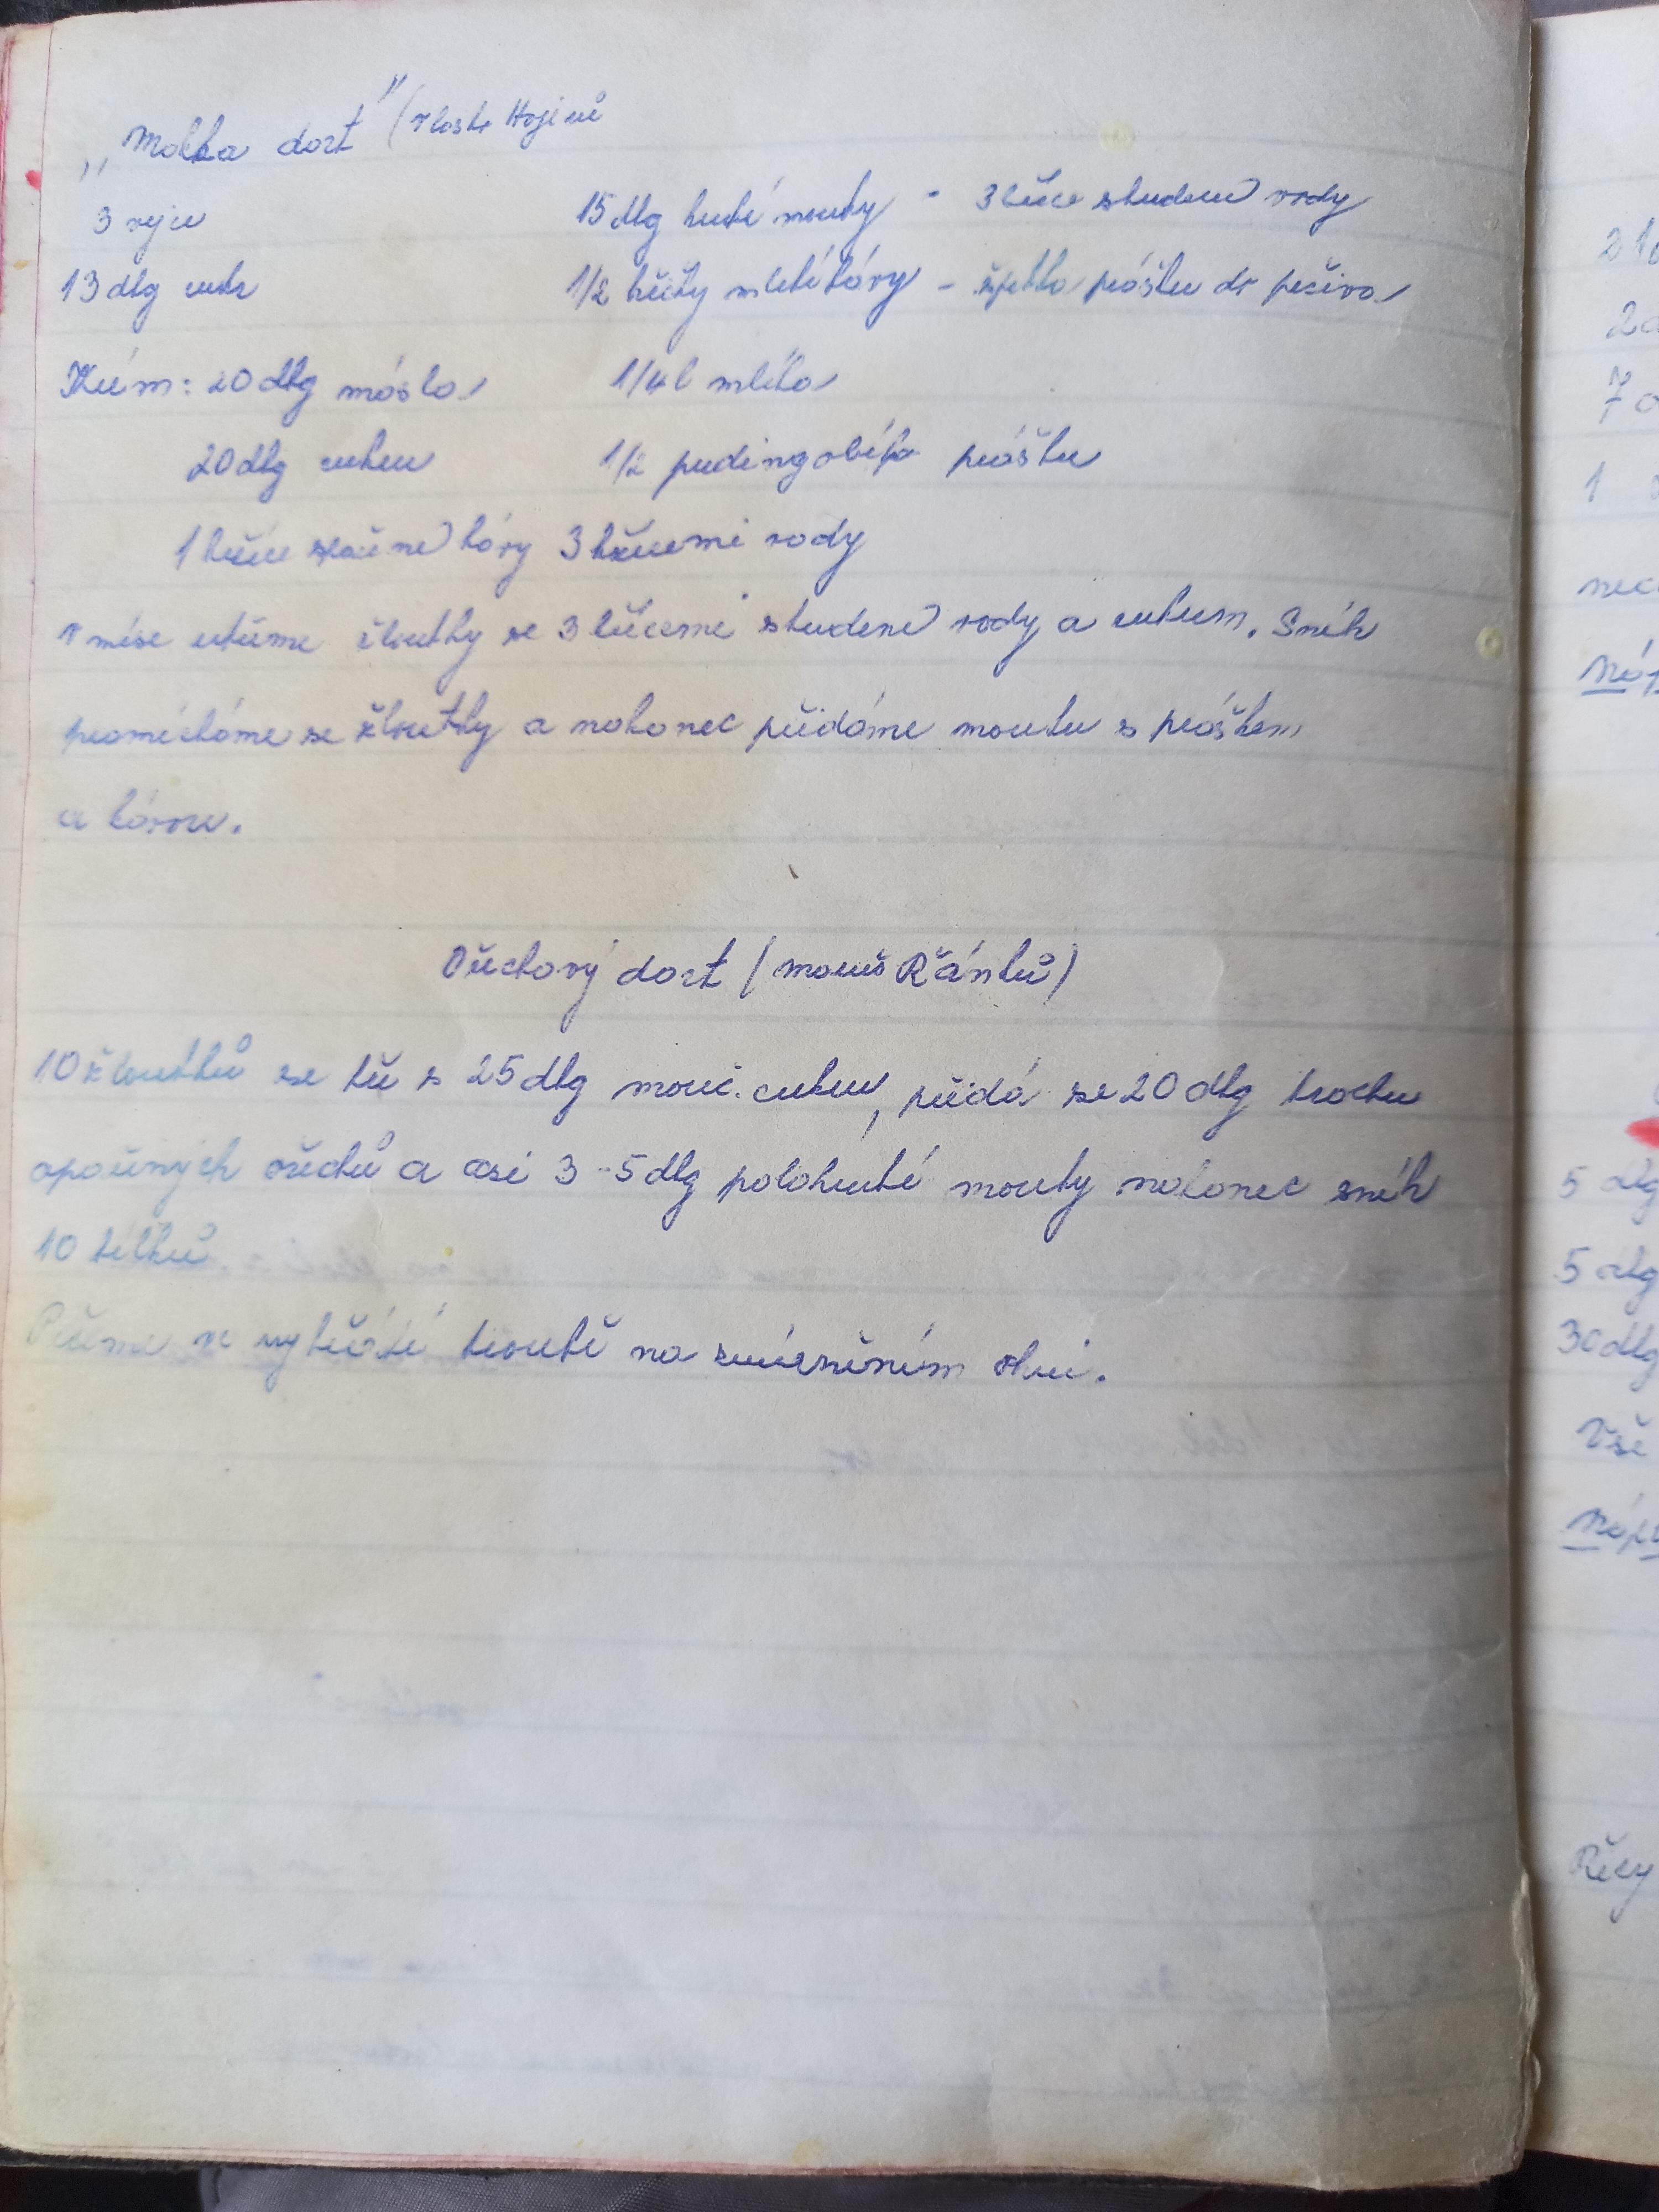 „Mokka dort" (Vlasta Hajinů
3 vejce 15 dkg hrubé mouky - 3 lžíce studené vody
13 dkg cukr 1/2 lžičky mleté kávy - špetka prášku do pečiva
Krém: 20 dkg másla 1/4 l mléka
20 dkg cukru 1/2 pudingového prášku
1 lžíce zrnkové kávy 3 lžícemi vody
V míse utřeme žloutky se 3 lžícemi studené vody a cukrem. Sníh
promícháme se žloutky a nakonec přidáme mouku s práškem
a kávou.
Ořechový dort (
10 žloutků se tře s 25 dkg mouč. cukru, přidá se 20 dkg trochu
opařených ořechů a asi 3-5 dkg polohrubé mouky nakonec sníh
10 bílků.
Pečeme ve vytřené troubě na zmírněném ohni.
2
2
7
1
5 dkg
5 dkg
30 dkg
Vše
Řezy